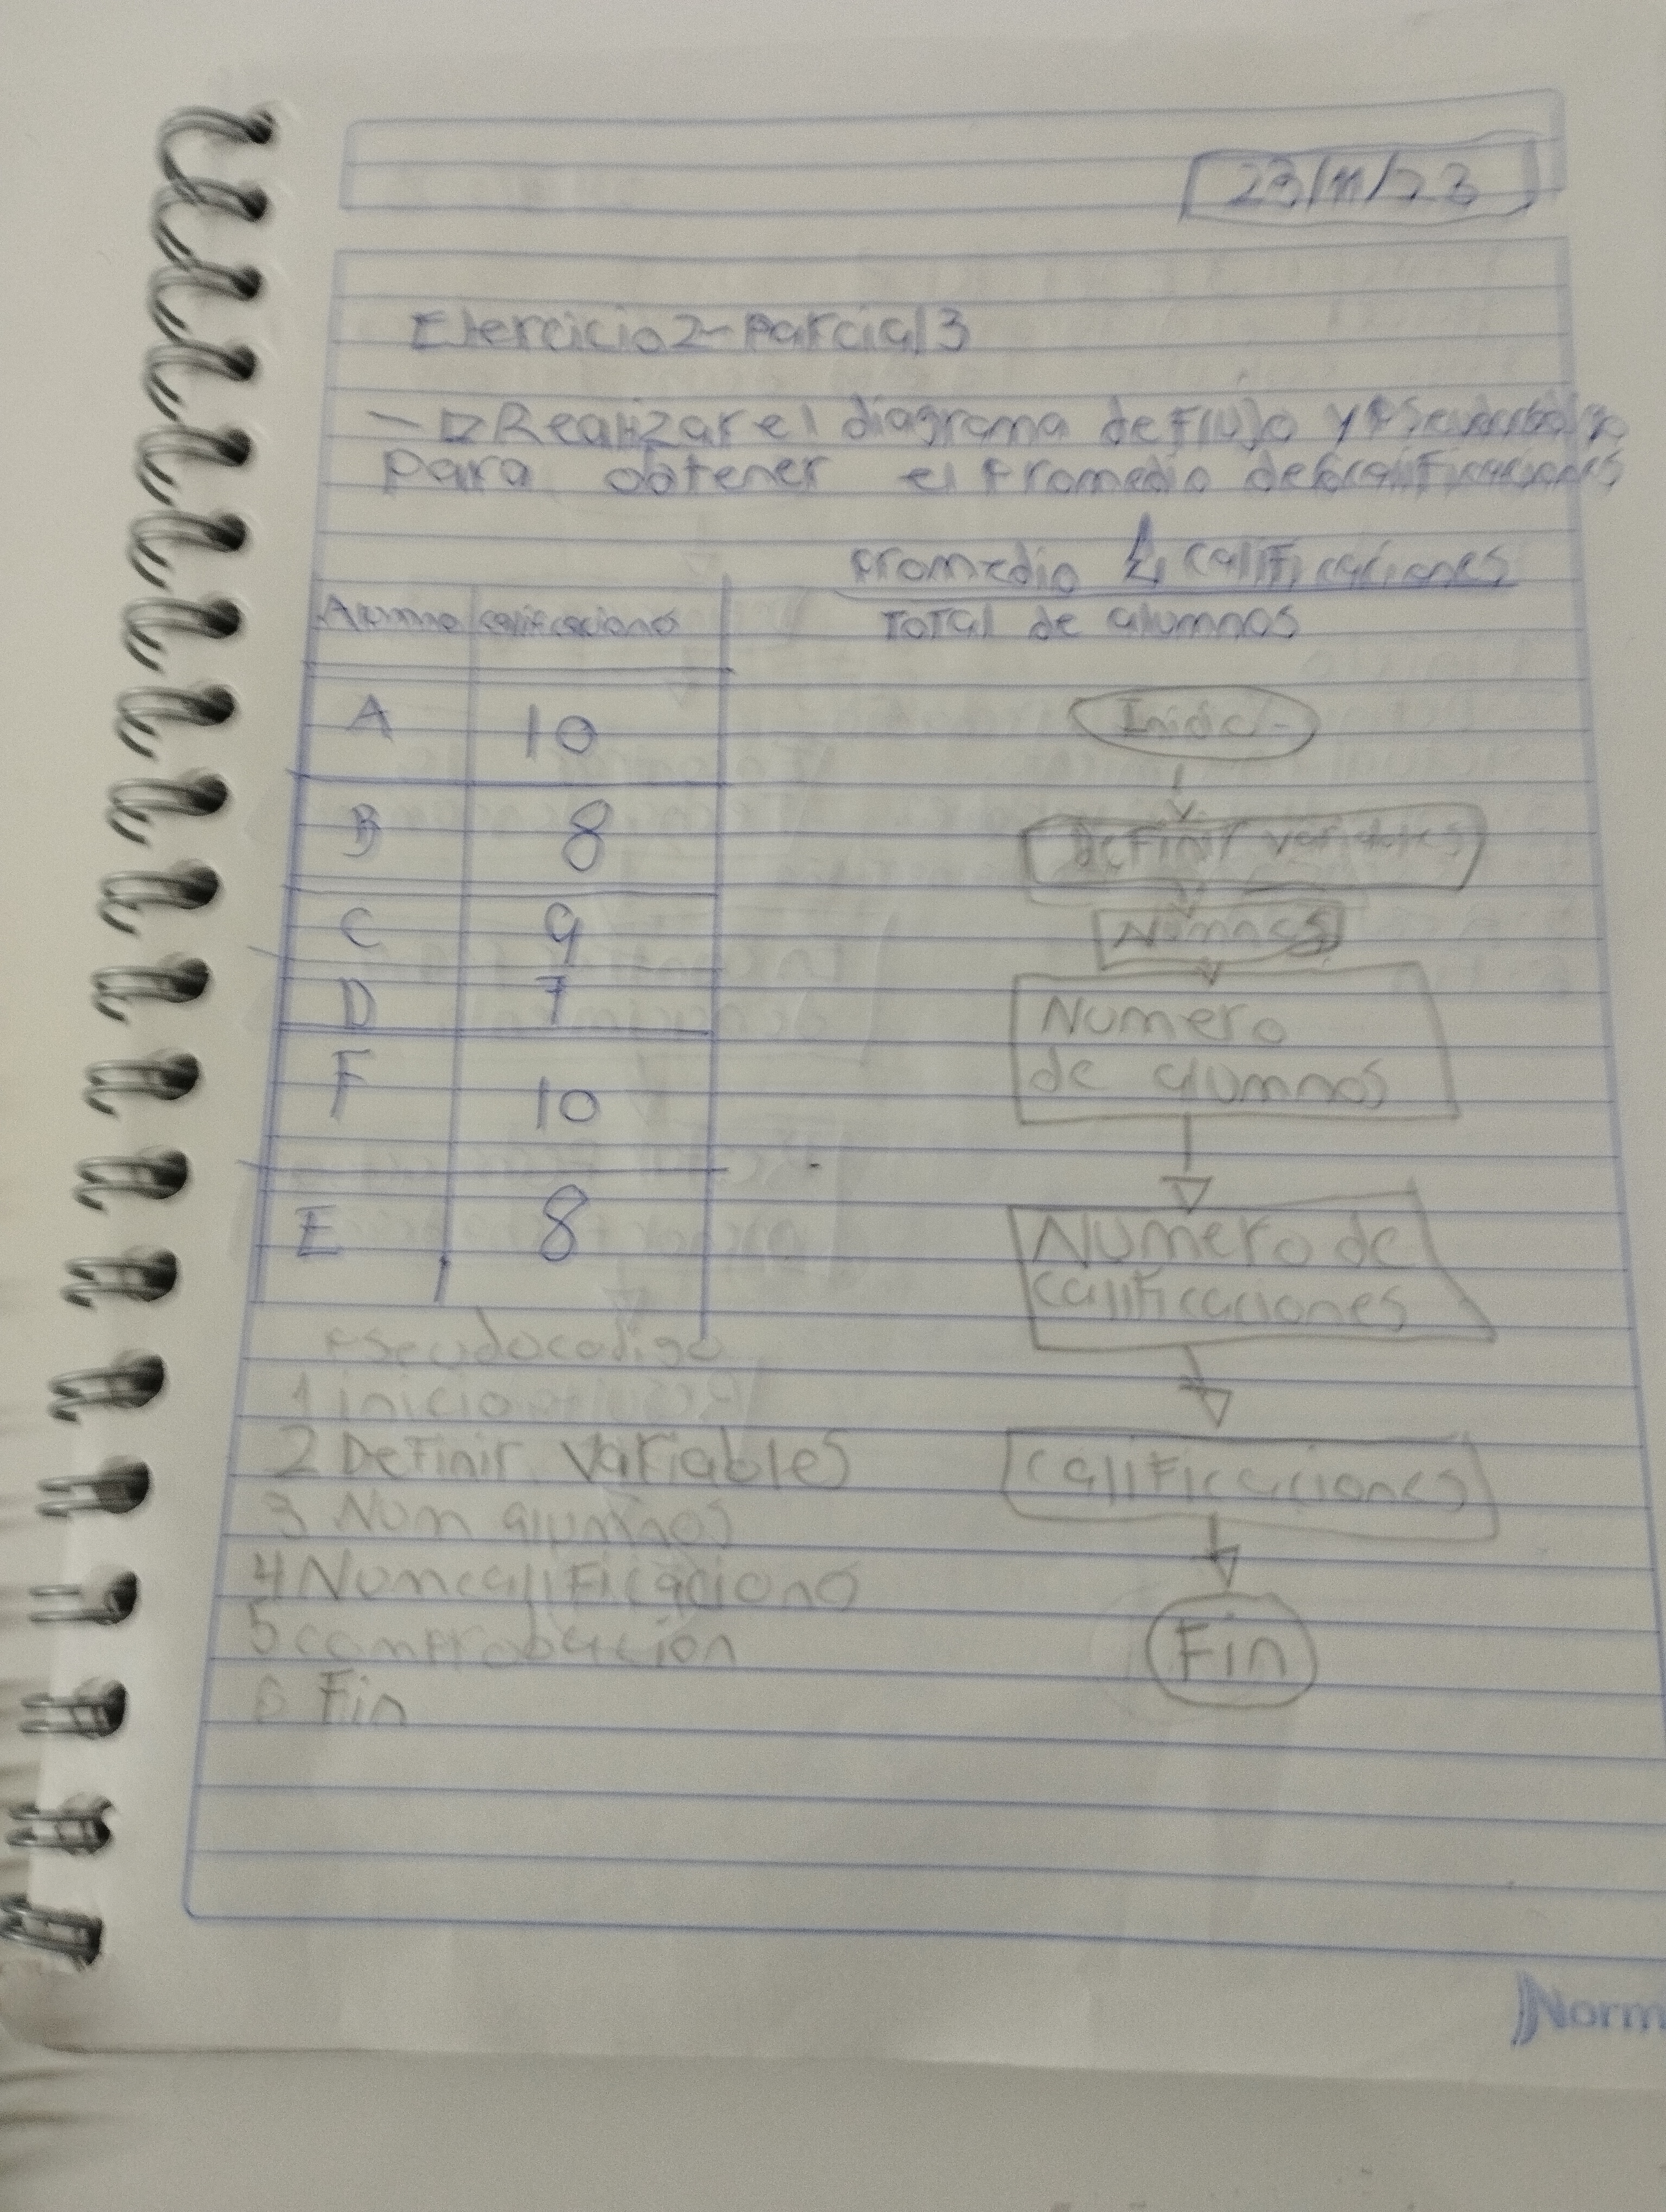 23/11/23
Ejercicio 2 - Parcial 3
Realizar el diagrama de flujo y Pseudocodigo
para obtener el Promedio de calificaciones
promedio Σ calificaciones
Total de alumnos
Alumno calificaciones
A 10
B 8
C 9
D 7
F 10
E 8
Inicio
Definir variables
Numero
de alumnos
Numero de
calificaciones
calificaciones
Fin
Pseudocodigo
1 inicio
2 Definir variables
3 Num alumnos
4 Num calificaciono
5 comprobacion
6 Fin
Norm